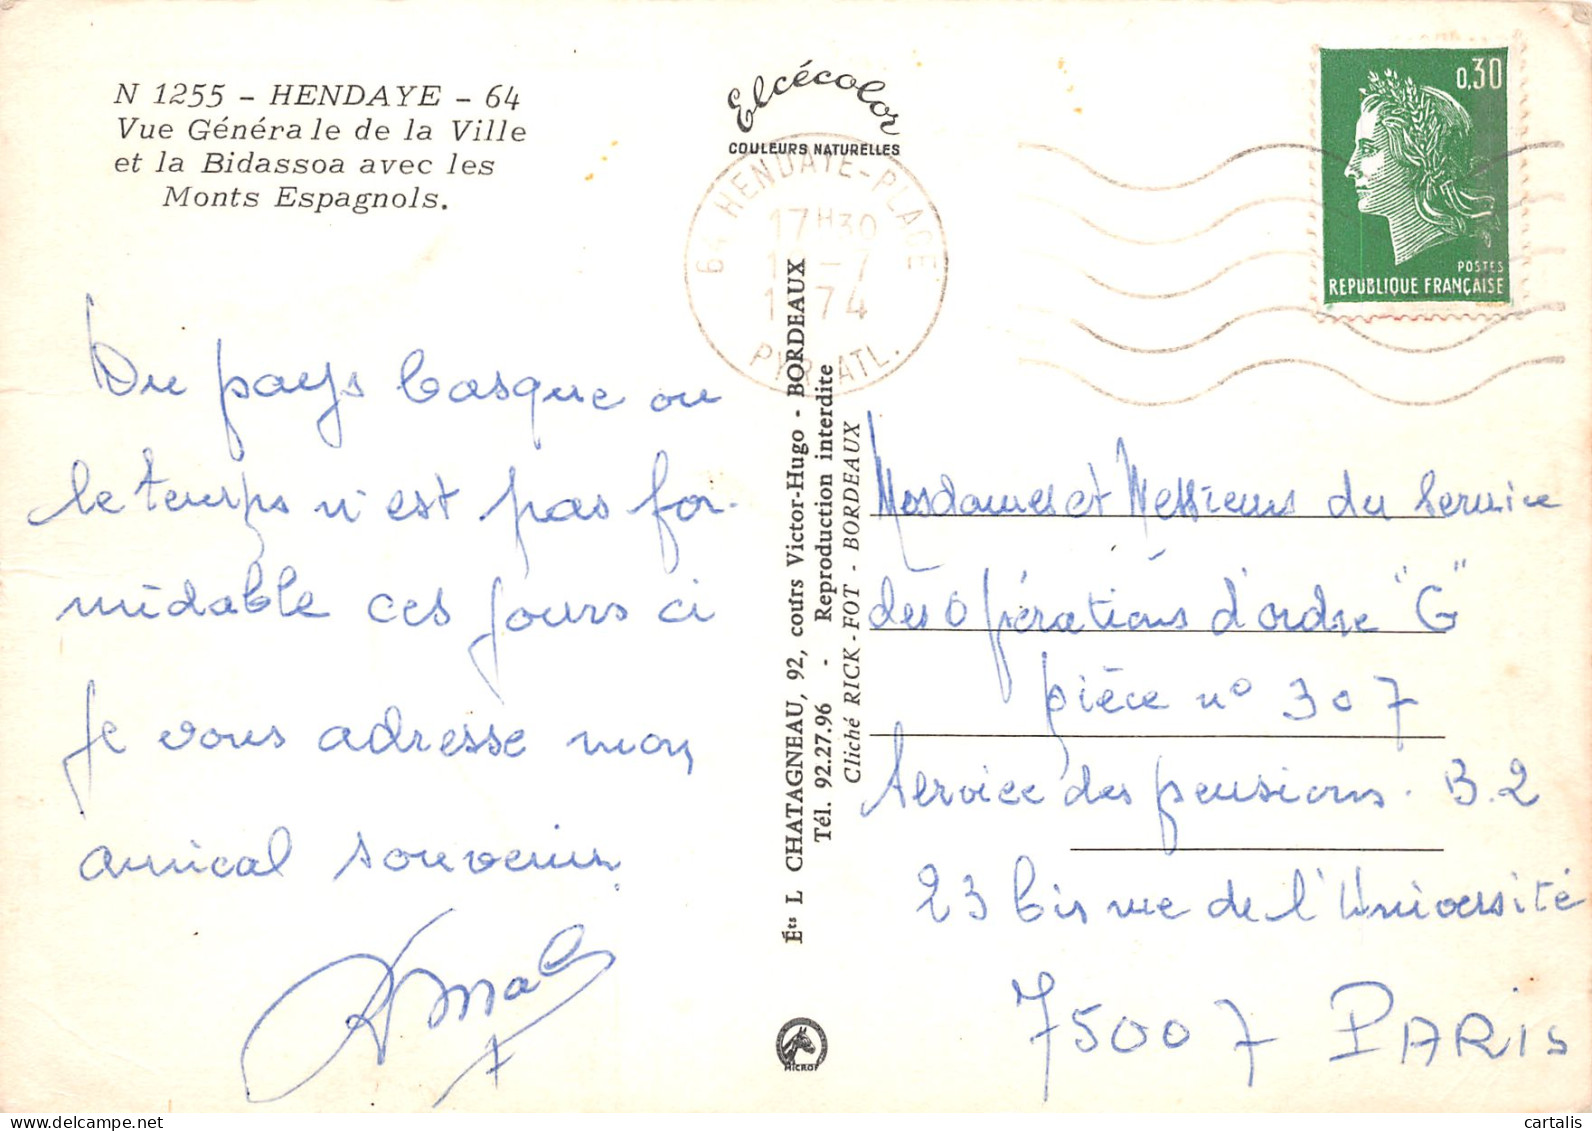 N 1255 - HENDAYE - 64
Vue Générale de la Ville
et la Bidassoa avec les
Monts Espagnols.
Elcécolor
COULEURS NATURELLES
64 HENDAYE-PLAGE
17H30
-7
1974
PYR. ATL.
0,30
POSTES
REPUBLIQUE FRANÇAISE
Du pays basque ou
le temps n'est pas for-
midable ces jours ci
je vous adresse mon
amical souvenir
Éts L CHATAGNEAU, 92, cours Victor-Hugo - BORDEAUX
Tél. 92.27.96 - Reproduction interdite
Cliché RICK-FOT - BORDEAUX
MICRO
Mesdames et Messieurs du Service
des Opérations d'ordre "G"
pièce n° 307
Service des pensions. B.2
23 bis rue de l'Université
75007 PARIS
cartalis
delcampe.net